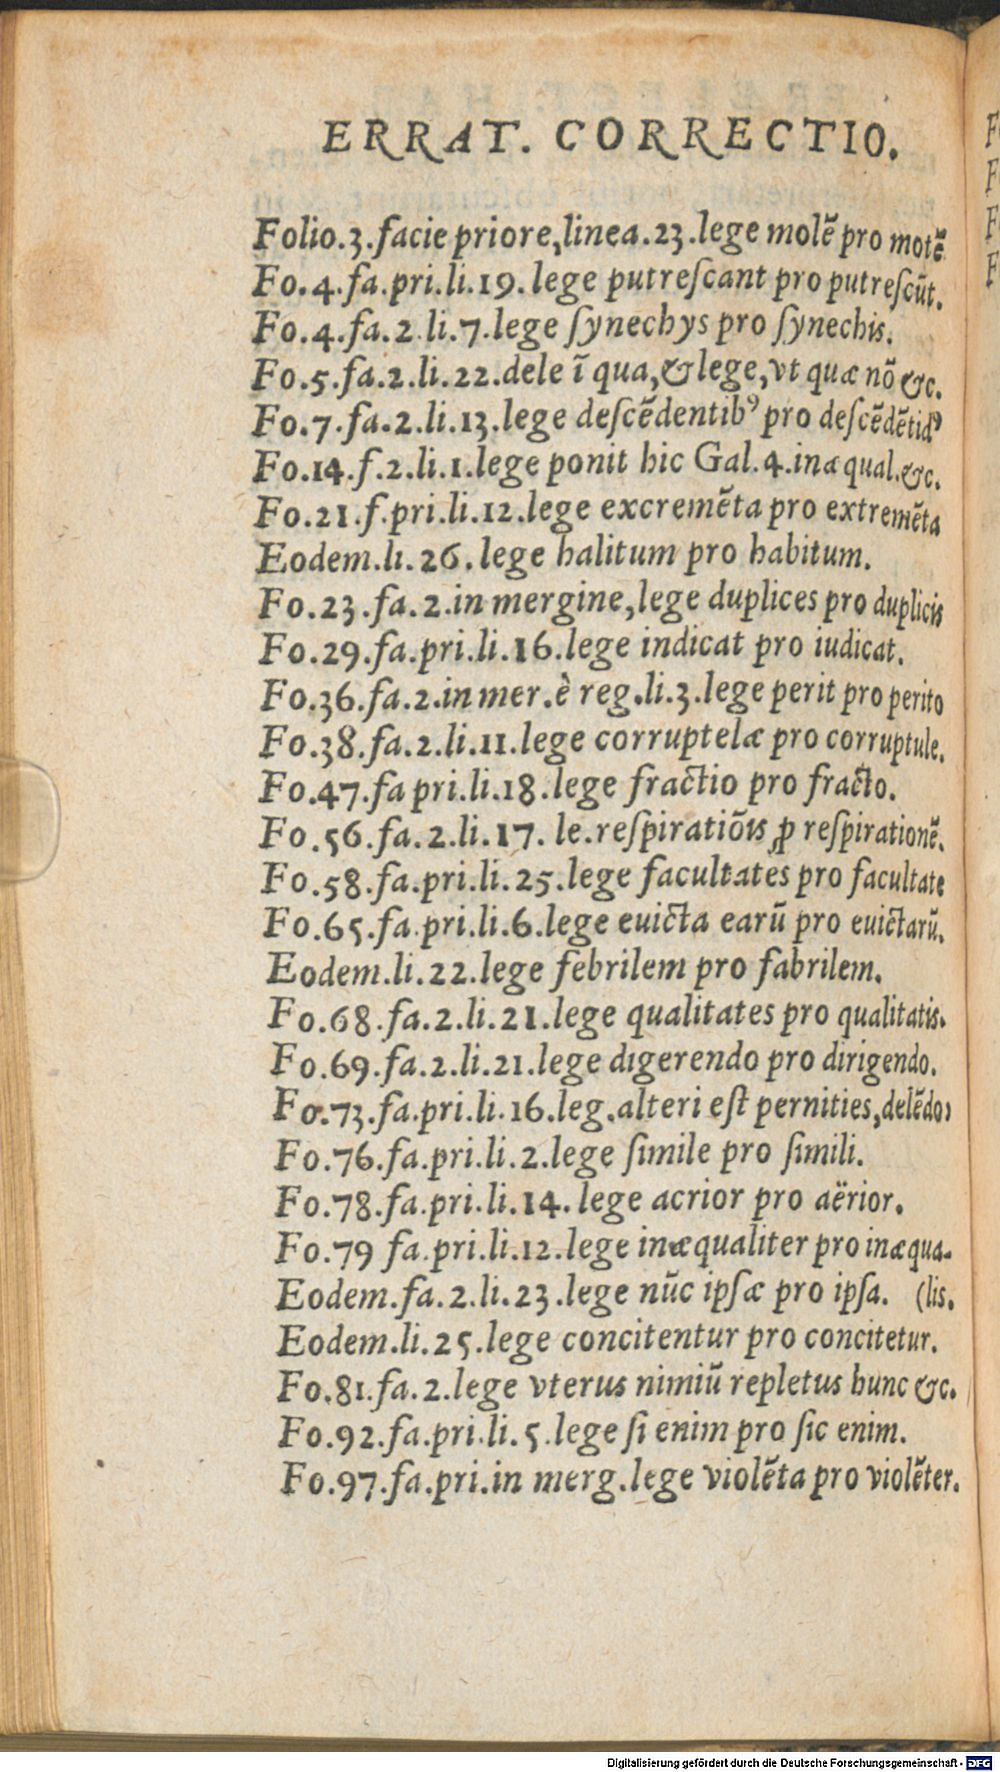 ERRAT. CORRECTIO.
Folio.3.facie priore,linea.23.lege molẽ pro motẽ
Fo.4.fa.pri.li.19.lege putreſcant pro putreſcũt.
Fo.4.fa.2.li.7.lege ſynechys pro ſynechis.
Fo.5.fa.2.li.22.dele ĩ qua,&lege,vt quæ nõ &c.
Fo.7.fa.2.li.13.lege deſcẽdentibꝰ pro deſcẽdẽtidꝰ
Fo.14.f.2.li.1.lege ponit hic Gal.4.inæqual.&c.
Fo.21.f.pri.li.12.lege excremẽta pro extremẽta
Eodem.li.26.lege halitum pro habitum.
Fo.23.fa.2.in mergine,lege duplices pro duplicis
Fo.29.fa.pri.li.16.lege indicat pro iudicat.
Fo.36.fa.2.in mer.è reg.li.3.lege perit pro perito
Fo.38.fa.2.li.11.lege corruptelæ pro corruptule.
Fo.47.fa pri.li.18.lege fractio pro fracto.
Fo.56.fa.2.li.17. le.reſpiratiõis ꝓ reſpirationẽ.
Fo.58.fa.pri.li.25.lege facultates pro facultate
Fo.65.fa.pri.li.6.lege euicta earũ pro euictarũ.
Eodem.li.22.lege febrilem pro fabrilem.
Fo.68.fa.2.li.21.lege qualitates pro qualitatis.
Fo.69.fa.2.li.21.lege digerendo pro dirigendo.
Fo.73.fa.pri.li.16.leg.alteri eſt pernities,delẽdo)
Fo.76.fa.pri.li.2.lege ſimile pro ſimili.
Fo.78.fa.pri.li.14.lege acrior pro aërior.
Fo.79 fa.pri.li.12.lege inæqualiter pro inæqua-
Eodem.fa.2.li.23.lege nũc ipſæ pro ipſa. (lis.
Eodem.li.25.lege concitentur pro concitetur.
Fo.81.fa.2.lege vterus nimiũ repletus hunc &c.
Fo.92.fa.pri.li.5.lege ſi enim pro ſic enim.
Fo.97.fa.pri.in merg.lege violẽta pro violẽter.
Digitalisierung gefördert durch die Deutsche Forschungsgemeinschaft - DFG